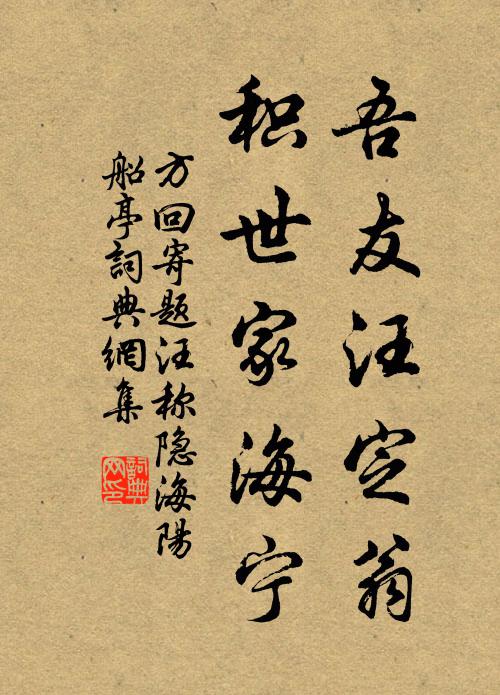 吾友汪定翁
积世家海宁
方回寄题汪称隐海陽
船亭詞典網集
詞典
网印